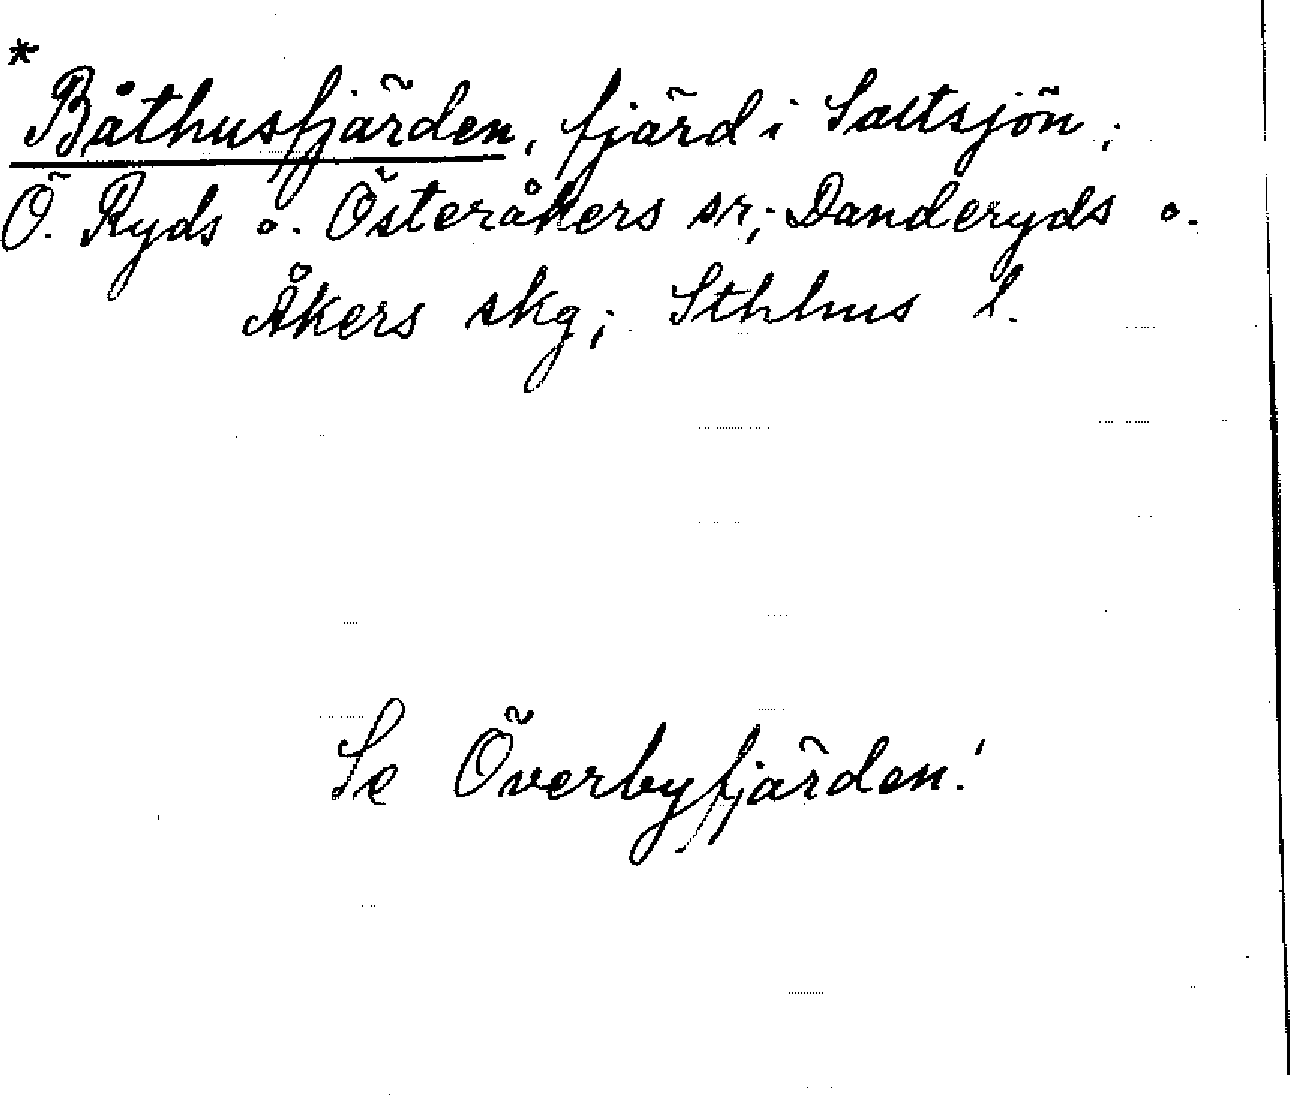 *
Båthusfjärden, fjärd i Saltsjön;
Ö. Ryds o. Österåkers sr; Danderyds o.
Åkers skg; Sthlms l.
Se Överbyfjärden!